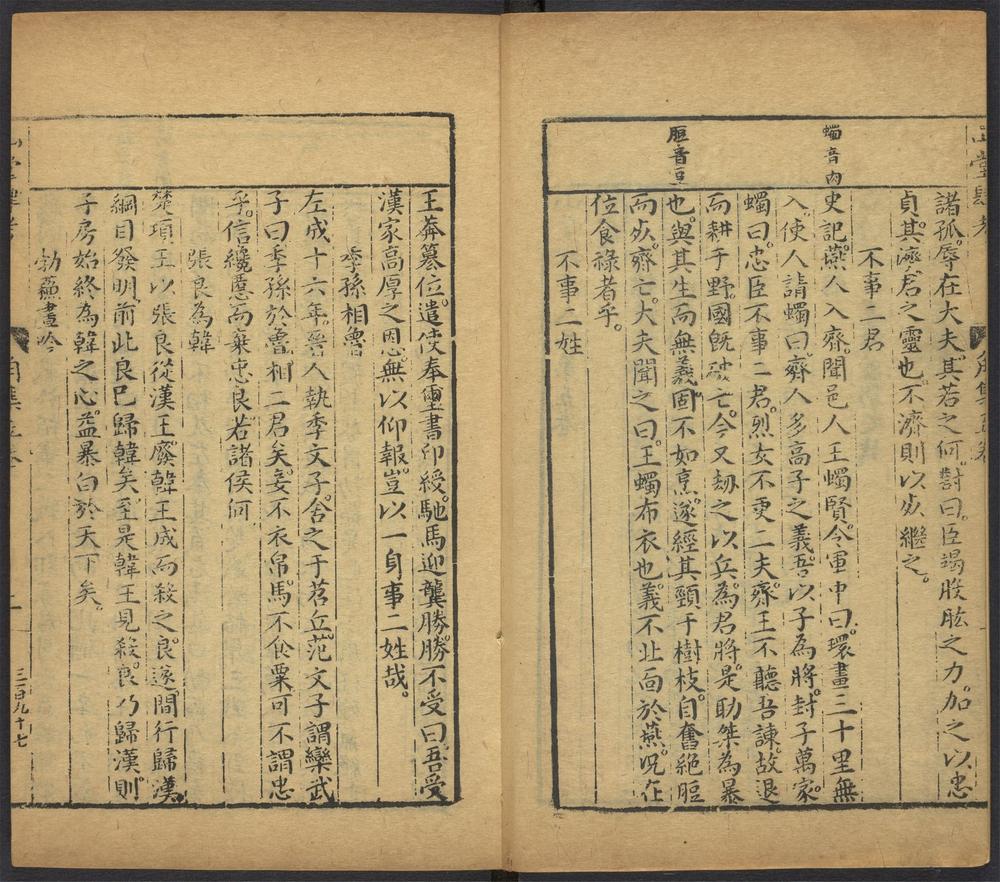 諸孤辱在大夫其若之何對曰臣竭股肱之力加之以忠
貞其濟君之靈也不濟則以死繼之
不事二君
蠋音肉
史記燕人入齊聞邑人王蠋賢令軍中曰環畫三十里無
入使人請蠋曰齊人多高子之義吾以子為將封子萬家
蠋曰忠臣不事二君烈女不更二夫齊王不聽吾諫故退
而耕于野國既破亡今又劫之以兵為君將是助桀為暴
脰音豆
也與其生而無義固不如烹遂經其頸于樹枝自奮絕脰
而死齊亡大夫聞之曰王蠋布衣也義不北面於燕况在
位食祿者乎
不事二姓
王莽篡位遣使奉璽書印綬馳馬迎龔勝勝不受曰吾受
漢家高厚之恩無以仰報豈以一身事二姓哉
季孫相魯
左成十六年晉人執季文子舍之于苕丘范文子謂欒武
子曰季孫於魯相二君矣妾不衣帛馬不食粟可不謂忠
乎信讒慝而棄忠良若諸侯何
張良為韓
楚項王以張良從漢王廢韓王成而殺之良遂間行歸漢
綱目發明前此良已歸韓矣至是韓王見殺良乃歸漢則
子房始終為韓之心益暴白於天下矣
勃蘇晝吟
三百九十七